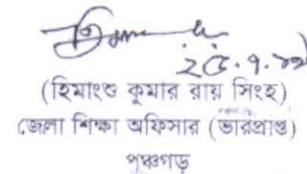 ২৫.৭.১৭
(হিমাংশু কুমার রায় সিংহ)
জেলা শিক্ষা অফিসার (ভারপ্রাপ্ত)
পঞ্চগড়